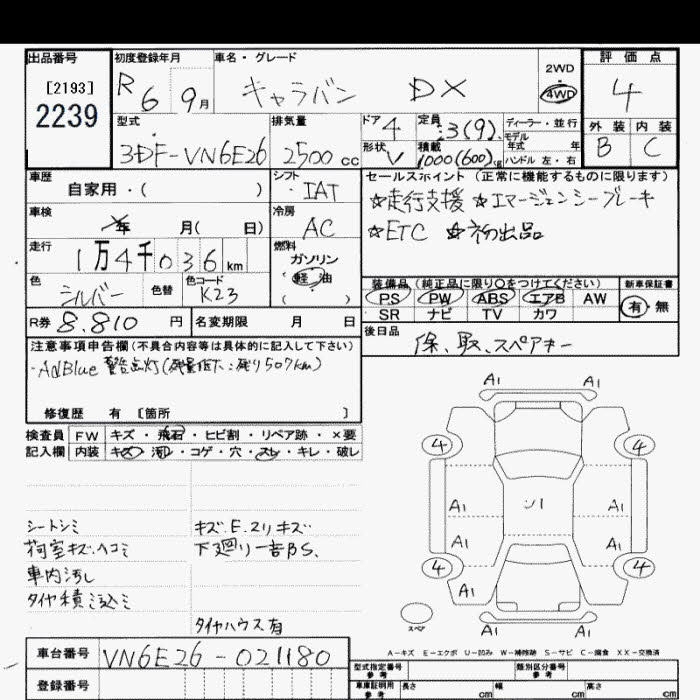 出品番号 初度登録年月 車名・グレード 評価点
[2193]
2239
R6 9月 キャラバン DX 2WD 4WD 4
型式 排気量 ドア 4 定員 3(9)人 ディーラー・並行 外装 内装
3DF-VN6E26 2500cc 形状 V 積載 1000(600)kg モデル年式 年 B C
ハンドル 左・右
車歴 シフト セールスポイント(正常に機能するものに限ります)
自家用・( ) IAT ☆走行支援 ☆エマージェンシーブレーキ
車検 年 月( 日) 冷房 AC ☆ETC ☆初出品
走行 燃料
1万4千036km ガソリン
軽油
( )
色 シルバー 色替 色コード K23
装備品(純正品に限り○をつけてください) 新車保証書
PS PW ABS エアB AW 有・無
SR ナビ TV カワ
R券 8.810円 名変期限 月 日
後日品 保、取、スペアキー
注意事項申告欄(不具合内容等は具体的に記入して下さい)
・AdBlue 警告点灯(残量低下:残り507km)
修復歴 有 [箇所 ]
検査員 FW キズ・飛石・ヒビ割・リペア跡・×要
記入欄 内装 キズ・汚レ・コゲ・穴・スレ・キレ・破レ
A1 A1
4 4
A1 A1
A1 A1
4 4
A1 A1
シートシミ キズ.E.スリキズ
荷室キズ.ヘコミ 下廻り一部S、
車内汚レ
タイヤ積込ミ
タイヤハウス有
スペア
A1 A1
A-キズ E-エクボ U-凹み W-補修跡 S-サビ C-腐食 XX-交換済
車台番号 VN6E26-021180
型式指定番号 参考 類別区分番号 参考
登録番号 車庫証明用 参考 長さ cm 幅 cm 高さ cm